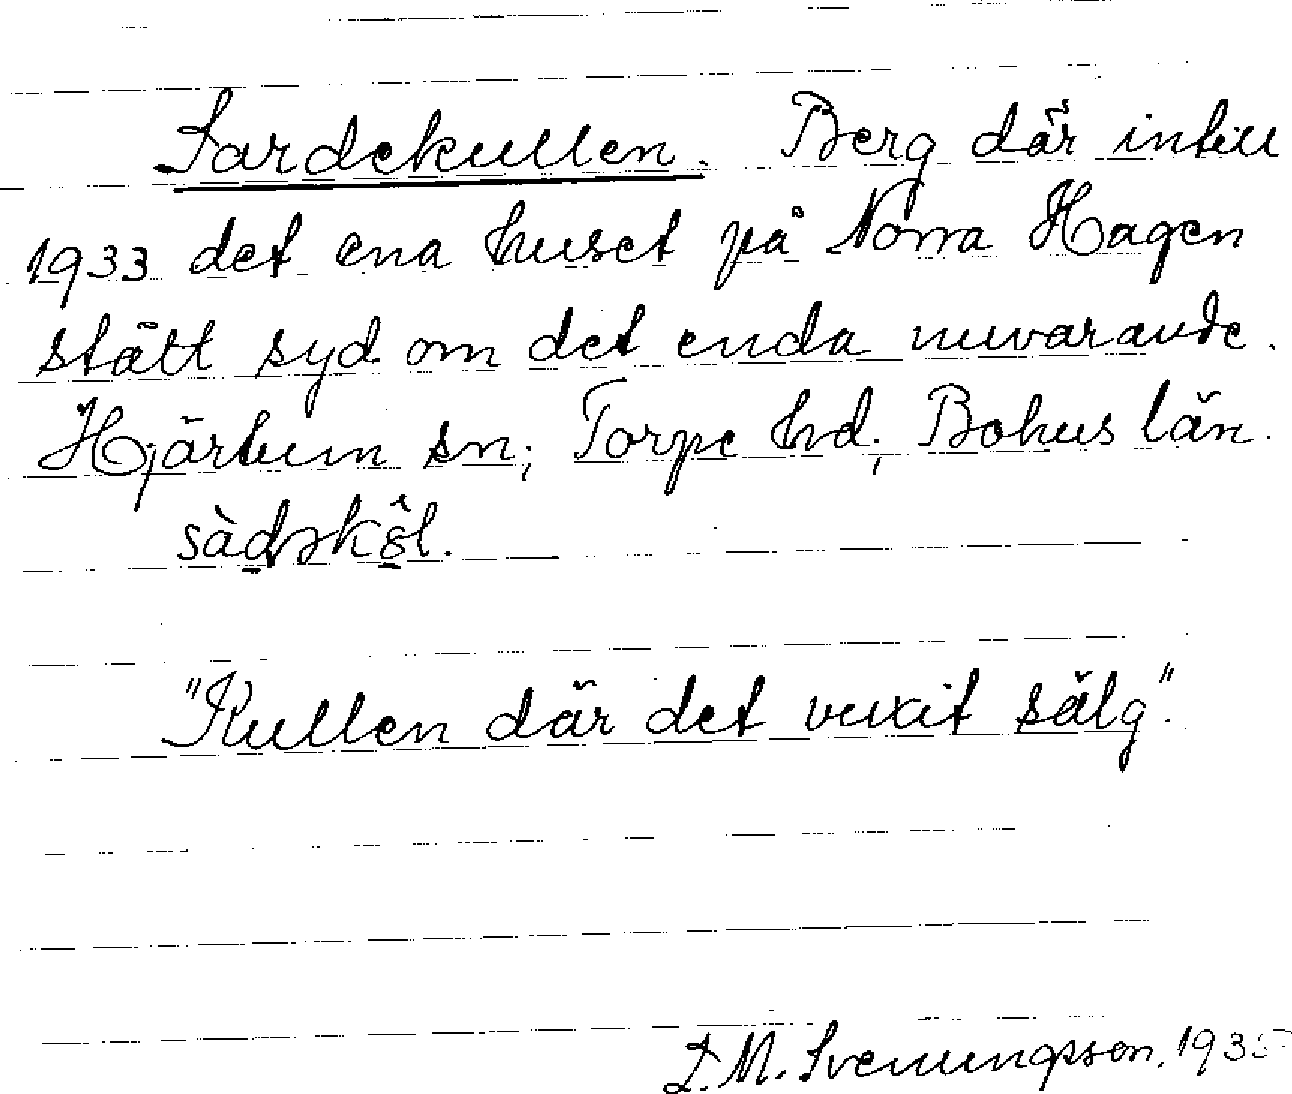 Sardekullen. Berg där intill
1933 det ena huset på Norra Hagen
stått syd om det enda nuvarande.
Hjärtum sn; Torpe hd; Bohus län.
"Kullen där det vuxit sälg".
J. M. Svenungsson. 1935